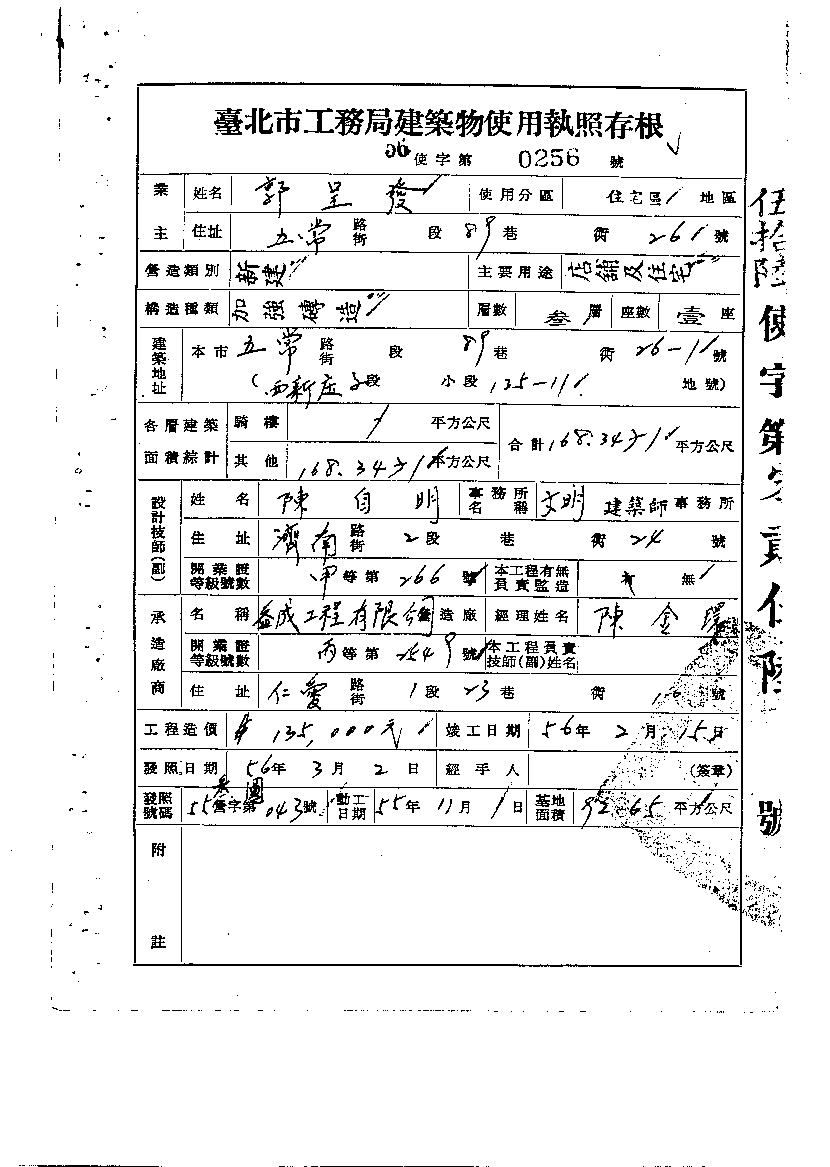 臺北市工務局建築物使用執照存根
56 使字第 0256 號
業主 姓名 郭呈發 使用分區 住宅區 地區
住址 五常 路街 段 89 巷 衖 26 號
營造類別 新建 主要用途 店舖及住宅
構造種類 加強磚造 層數 叁層 座數 壹座
建築地址 本市 五常 路街 段 89 巷 衖 26-1 號
(西新庄子段 小段 135-11 地號)
各層建築面積綜計 騎樓 平方公尺 合計 168.34 平方公尺
其他 168.34 平方公尺
設計技師(副) 姓名 陳自明 事務所名稱 文明 建築師事務所
住址 濟南 路街 2段 巷 衖 24 號
開業證等級號數 甲等第 266 號 本工程有無負責監造 有 無
承造廠商 名稱 益成工程有限公司 營造廠 經理姓名 陳金環
開業證等級號數 丙等第 2549 號 本工程負責技師(副)姓名
住址 仁愛 路街 1段 23巷 衖 號
工程造價 $135,000元 竣工日期 56年2月15日
發照日期 56年3月2日 經手人 (簽章)
發照號碼 55 營字第 043 號 動工日期 55年11月1日 基地面積 92.65 平方公尺
附註
伍拾陸使字第 貳伍陸 號